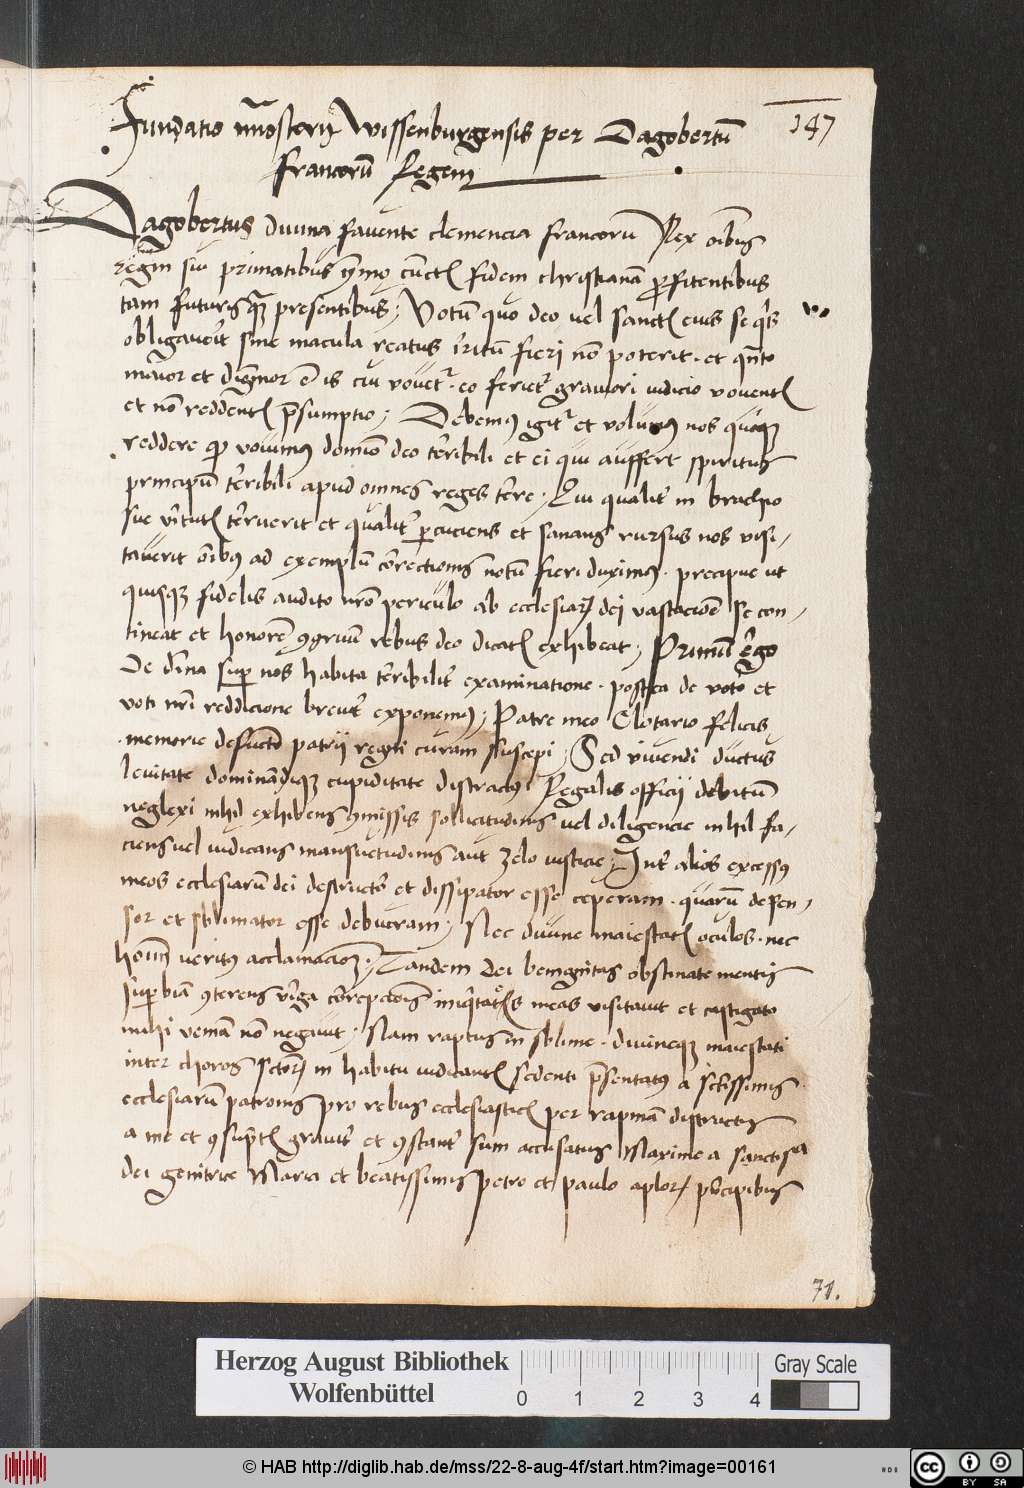 147
Fundatio mostery Wissenburgensis per Dagobertū
Francorū Regem
Dagobertus divina favente clemencia francorū Rex oībus
regni sui primatibus ymo cūctis fidem christianā profitentibus
tam futuris quā presentibus; Votum quo deo vel sanctis eius se qⁱs
obligaverit sine macula reatus irritū fieri nō poterit. et quāto
maior et dignior ē is cui vovetʳ. eo ferietʳ graviori iudicio voventis
et nō reddentis p̄sumptio; Debemus igitʳ et volumus nos quoque
reddere qd vovimus domino deo terribili et ei qui auffert spiritus
principū terribili apud omnes reges terre; Qui qualitʳ in brachio
sue virtutis terruerit et qualitʳ percuciens et sanans rursus nos visi-
taverit oībus ad exemplū correctionis notū fieri duximus. precipue ut
quisque fidelis audito nro periculo ab ecclesiarū dei vastacione se con-
tineat et honorē congruum rebus deo dicatis exhibeat; Primū ergo
De divina super nos habita terribilitʳ examinatione. postea de voto et
voti nri reddicione brevitʳ exponemus; Patre meo Clotario felicis
memorie defuncto patrii regni curam suscepi; Sed iuvenili ductus
levitate dominandique cupiditate distractus Regalis officii debitum
neglexi nihil exhibens commissis sollicitudinis vel diligencie nihil fa-
ciens vel iudicans mansuetudinis aut zelo iusticie; Intʳ alios excessus
meos ecclesiarū dei destructor et dissipator esse ceperam. quarū defen-
sor et sblimator esse debueram; Nec divine maiestatis oculos. nec
hominū veritus acclamacionem; Tandem dei benignitas obstinate mentis
superbiā conterens virga correpcionis iniqⁱtates meas visitavit et castigato
mihi veniā non negavit; Nam raptus in sblime. divineque maiestati
inter choros sctorū in habitu iudicantis sedenti p̄sentatus a sctissimis
ecclesiarū patronis pro rebus ecclesiasticis per rapinā distractis
a me et consumptis gravitʳ et constantʳ sum accusatus Maxime a sanctissa
dei genitrice Maria et beatissimis petro et paulo aplorū principibus
71.
Herzog August Bibliothek
Wolfenbüttel
0 1 2 3 4
Gray Scale
© HAB http://diglib.hab.de/mss/22-8-aug-4f/start.htm?image=00161
cc BY SA